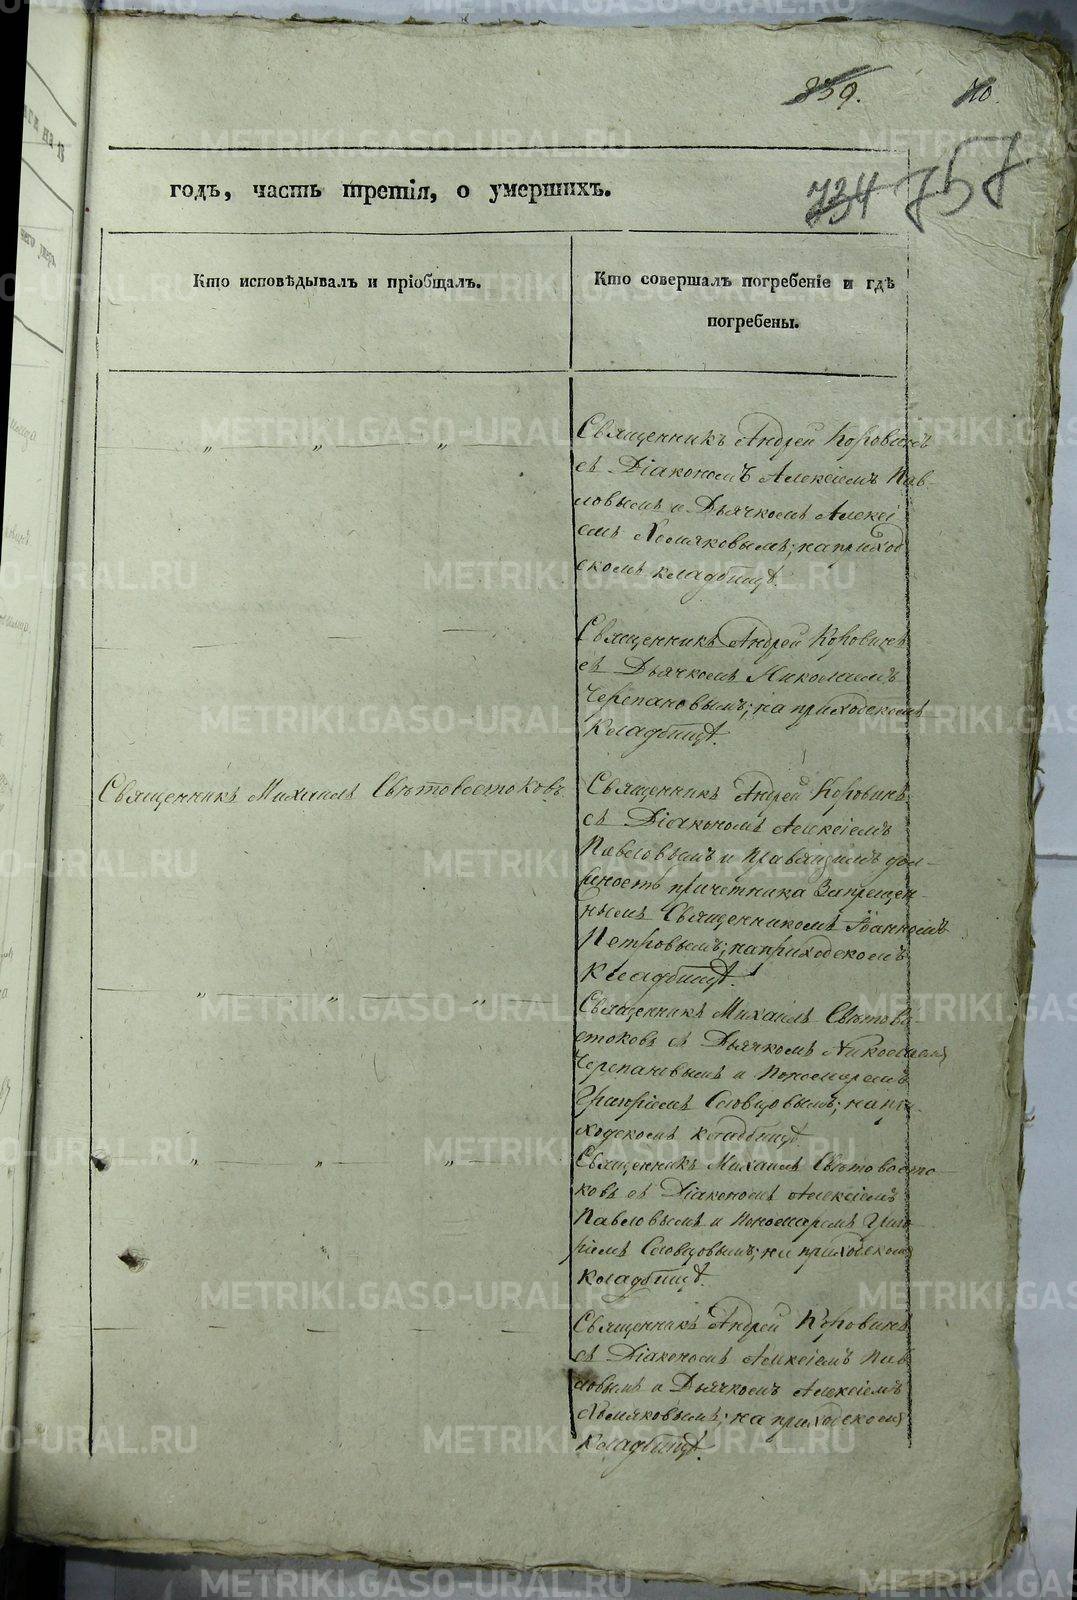 839. 70.
734 757
годъ, часть третія, о умершихъ.
Кто исповѣдывалъ и пріобщалъ.
Кто совершалъ погребеніе и гдѣ
погребены.
„ „ „
Священникъ Андрей Коровинъ
съ Діакономъ Алексіемъ Пав-
ловымъ и Дьячкомъ Алексі
емъ Хомяковымъ; на приход
скомъ кладбищѣ.
Священникъ Андрей Коровинъ
съ Дьячкомъ Николаемъ
Черепановымъ; на приходскомъ
Кладбищѣ.
Священникъ Михаилъ Свѣтовостоковъ.
Священникъ Андрей Коровинъ
съ Діакономъ Алексіемъ
Павловымъ и Правящимъ дол-
жность причетника Запрещен-
нымъ Священникомъ Іоанномъ
Петровымъ; на приходскомъ
Кладбищѣ.
„ „ „
Священникъ Михаилъ Свѣтово-
стоковъ съ Дьячкомъ Николаемъ
Черепановымъ и Пономаремъ
Григоріемъ Словцовымъ; на при-
ходскомъ кладбищѣ
„ „ „
Священникъ Михаилъ Свѣтовосто-
ковъ съ Діакономъ Алексіемъ
Павловымъ и Пономаремъ Григо
ріемъ Словцовымъ; на приходскомъ
Кладбищѣ.
Священникъ Андрей Коровинъ
съ Діакономъ Алексіемъ Пав
ловымъ и Дьячкомъ Алексіемъ
Хомяковымъ; на приходскомъ
Кладбищѣ.
METRIKI.GASO-URAL.RU